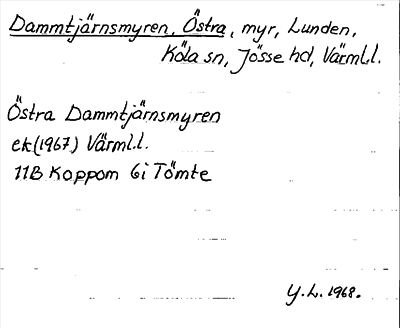 Dammtjärnsmyren, Östra, myr, Lunden,
Köla sn, Jösse hd, Värml.l.
Östra Dammtjärnsmyren
ek(1967) Värml.l.
11B Koppom 6i Tömte
Y.L. 1968.